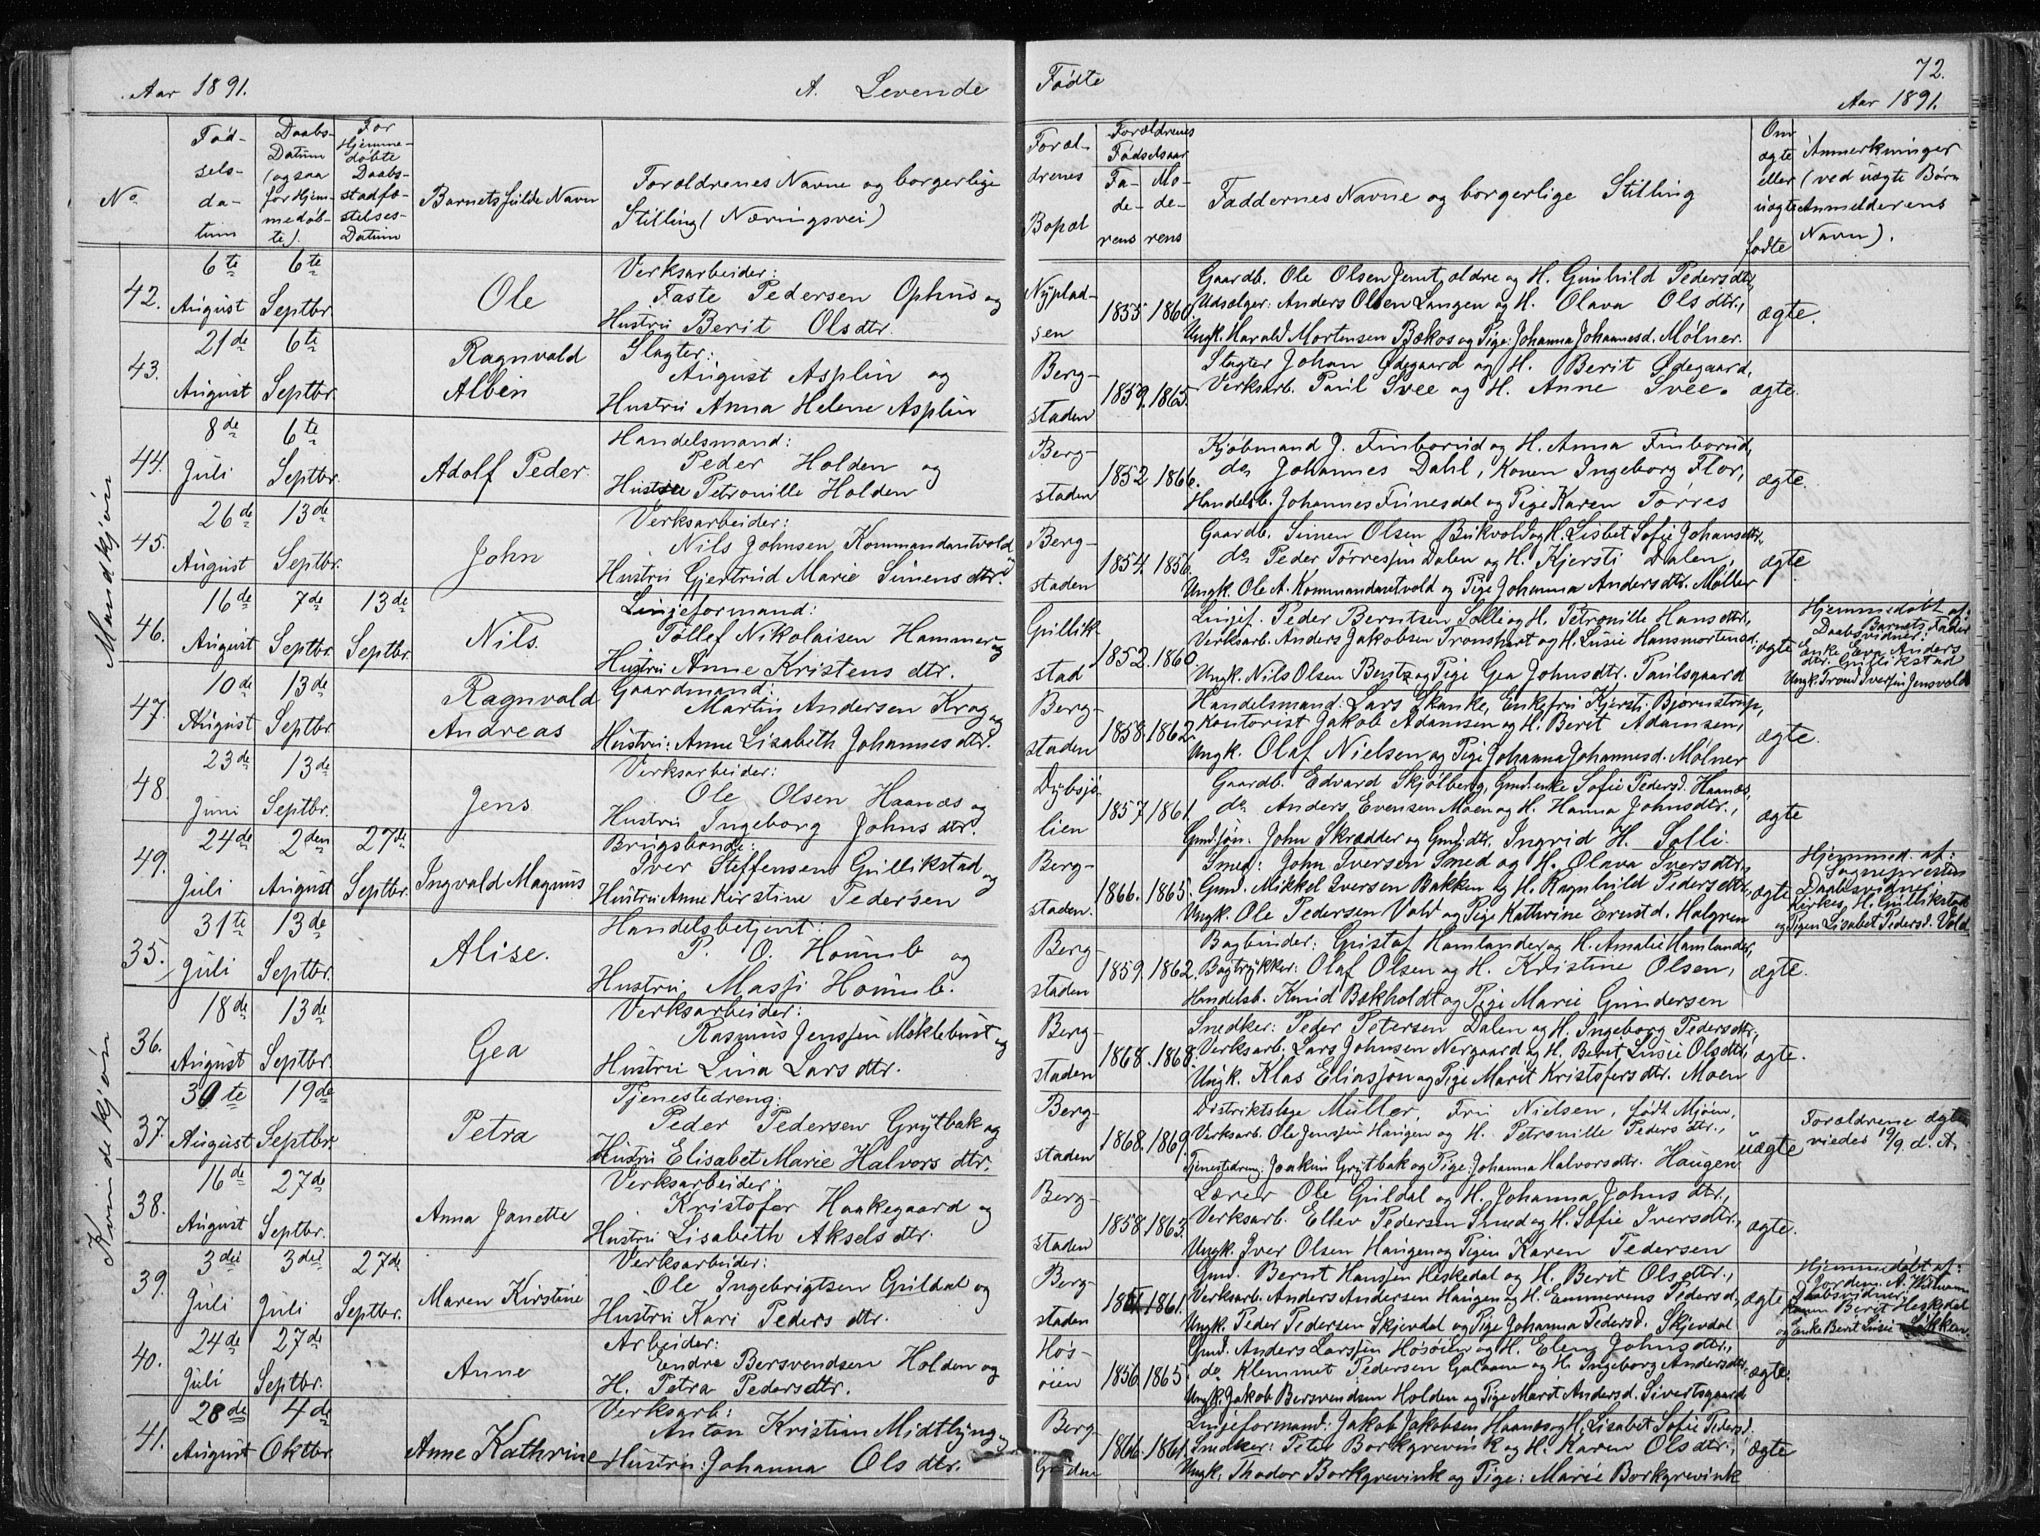 Aar 1891.
A. Levende
No
Fød-
sels-
da-
tum
Daabs-
Datum
(ogsaa
for Hjem-
medøb-
te).
For
Hjemme-
døbte
Daabs-
stadfæ-
stelses-
Datum
Barnets fulde Navn
Forældrenes Navne og borgerlige
Stilling (Næringsvei)
Mandkjøn
42.
6te
August
6te
Septbr.
Ole
Verksarbeider:
Faste Pedersen Ophus og
Hustru Berit Olsdtr.
43.
21de
August
6te
Septbr.
Ragnvald
Albin
Slagter:
August Asplin og
Hustru Anna Helene Asplin
44.
8de
Juli
6te
Septbr.
Adolf Peder.
Handelsmand:
Peder Holden og
Hustru Petronille Holden
45.
26de
August
13de
Septbr.
John
Verksarbeider:
Nils Johnsen Kommandantvold og
Hustru Gjertrud Marie Simensdtr.
46.
16de
August
7de
Septbr.
13de
Septbr.
Nils.
Linjeformand:
Tollef Nikolaisen Hammer og
Hustru Anne Kristensdtr.
47.
10de
August
13de
Septbr.
Ragnvald
Andreas
Gaardmand:
Martin Andersen Krog og
Hustru: Anne Lisabeth Johannesdtr.
48.
23de
Juni
13de
Septbr.
Jens
Verksarbeider:
Ole Olsen Haanæs og
Hustru Ingeborg Johnsdtr.
49.
24de
Juli
2den
August
27de
Septbr.
Ingvald Magnus
Brugsbonde:
Iver Steffensen Gullikstad og
Hustru Anne Kirstine Pedersen
Kvindekjøn
35.
31te
Juli
13de
Septbr.
Alise.
Handelsbetjent:
P. O. Houmb og
Hustru Massi Houmb.
36.
18de
August
13de
Septbr.
Gea
Verksarbeider:
Rasmus Jenssen Møklebust og
Hustru Lina Larsdtr.
37.
30te
August
19de
Septbr.
Petra
Tjenestedreng:
Peder Pedersen Grytbak og
Hustru Elisabet Marie Halvorsdtr.
38.
16de
August
27de
Septbr.
Anna Janette
Verksarbeider:
Kristofer Haakegaard og
Hustru Lisabeth Akselsdtr.
39.
3dei
Juli
3dei
Juli
27de
Septbr.
Maren Kirstine
Verksarbeider:
Ole Ingebrigtsen Guldal og
Hustru Kari Pedersdtr.
40.
24de
Juli
27de
Septbr.
Anne
Arbeider:
Endre Bersvendsen Holden og
H. Petra Pedersdtr.
41.
28de
August
4de
Oktbr.
Anne Kathrine
Verksarb:
Anton Kristian Midtlyng og
Hustru: Johanna Olsdtr.
Fødte
72.
Aar 1891.
Foræl-
drenes
Bopæl
Forældrenes
Fødselsaar
Fa-
de-
rens
Mo-
de-
rens
Faddernes Navne og borgerlige Stilling
Om
ægte
eller
uægte
fødte
Anmerkninger
(ved uægte Børn
Anmelderens
Navn).
Nyplad-
sen
1855
1860.
Gaardb. Ole Olsen Jemt, ældre og H. Gunhild Pedersdtr,
Udsælger: Anders Olsen Langen og H. Olava Olsdtr.,
Ungk. Harald Mortensen Bækos og Pige: Johanna Johannesd. Mølner.
ægte.
Berg-
staden
1859.
1865.
Slagter Johan Ødegaard og H. Berit Ødegaard,
Verksarb. Paul Svee og H. Anne Svee.
ægte.
Berg-
staden
1852
1866.
Kjøbmand J. Finborud og H. Anna Finborud,
do Johannes Dahl, Konen Ingeborg Flor,
Handelsb. Johannes Finnesdal og Pige Karen Torres
ægte.
Berg-
staden
1854.
1856.
Gaardb. Simen Olsen Bukvold og H. Lisbet Sofie Johansdtr.
do Peder Torressen Dalen og H. Kjersti Dalen,
Ungk. Ole A. Kommandantvold og Pige Johanna Andersdtr. Møller
ægte.
Gullik-
stad
1852.
1860.
Linjef. Peder Berntsen Solli og H. Petronille Hansdtr.,
Verksarb. Anders Jakobsen Tronshart og H. Lusie Hansmortensd.
Ungk. Nils Olsen Berg og Pige Gea Johnsdtr. Paulsgaard
ægte
Hjemmedøbt af:
Barnets Fader
Daabsvidner:
Enke Eva Anders
dtr. Gullikstad
Ungk. Trond Iversen Jensvold
Berg-
staden
1858.
1862
Handelsmand: Lars Skanke, Enkefru Kjersti Bjørnstrup,
Kontorist Jakob Adamsen og H. Berit Adamsen,
Ungk. Olaf Nielsen og Pige Johanna Johannesd. Mølner
ægte.
Dybsjø-
lien
1857.
1861.
Gaardb. Edvard Skjølberg, Gmd.enke Sofie Pedersd. Haanæs,
do Anders Evensen Moen og H. Hanna Johnsdtr.,
Gmd.søn. John Skrædder og Gmd.dtr. Ingrid H. Solli.
ægte
Berg-
staden.
1866.
1865.
Smed: John Iversen Smed og H. Olava Iversdtr.,
Gmd. Mikkel Iversen Bakken og H. Ragnhild Pedersdtr,
Ungk. Ole Pedersen Vold og Pige Kathrine Ernstd. Halgren
ægte
Hjemmed. af:
Sognepresten
Daabsvidner:
Kirkes. H. Gullikstad
og Pigen Lisabet Pedersd. Vold.
Berg-
staden
1859.
1862.
Bogbinder: Gustaf Hamlander og H. Amalie Hamlander,
Bogtrykker: Olaf Olsen og H. Kristine Olsen,
Handelsb. Knud Bækholdt og Pige Marie Gundersen
ægte.
Berg-
staden
1868.
1868.
Snedker: Peder Petersen Dalen og H. Ingeborg Pedersdtr.,
Verksarb. Lars Johnsen Nergaard og H. Berit Lusie Olsdtr,
Ungk. Klas Eliassøn og Pige Marit Kristofersdtr. Moen
ægte.
Berg-
staden
1868.
1869.
Distriktslæge Müller, Fru Nielsen, født Mjøen,
Verksarb. Ole Jenssen Haugen og H. Petronille Pedersdtr.,
Tjenestedreng: Joakim Grytbak og Pige: Johanna Halvorsdtr. Haugen
uægte
Forældrene ægte-
viedes 19/9 d. A.
Berg-
staden
1858.
1863.
Lærer Ole Guldal og H. Johanna Johnsdtr.,
Verksarb. Ellev Pedersen Smed og H. Sofie Iversdtr.,
Ungk. Iver Olsen Haugen og Pigen Karen Pedersen
ægte.
Berg-
staden
1861.
Gmd. Bernt Hanssen Heskedal og H. Berit Olsdtr.,
Verksarb. Anders Andersen Haugen og H. Emmerens Pedersd,
Ungk. Peder Pedersen Skjevdal og Pige Johanna Pedersd. Skjevdal
ægte
Hjemmedøbt af:
Jordem. A.
Daabsvidner:
Konen Berit Heskedal
og Enke Berit Lusie Løkken.
Høs-
øien
1856
1865.
Gmd. Anders Larssen Høsøien og H. Elen Johnsdtr.,
do Klemmet Pedersen Galaaen og H. Ingeborg Andersdtr.
Ungk. Jakob Bersvendsen Holden og Pige Marit Andersd. Sivertsgaard
ægte.
Berg-
Graden
1866.
1861.
Linjeformand: Jakob Jakobsen Haanæs og H. Lisabet Sofie Pedersd.
Snedker: Peter Borkgrevink og H. Karen Olsdtr.,
Ungk. Thodor Borkgrevink og Pige: Marie Borkgrevink
ægte